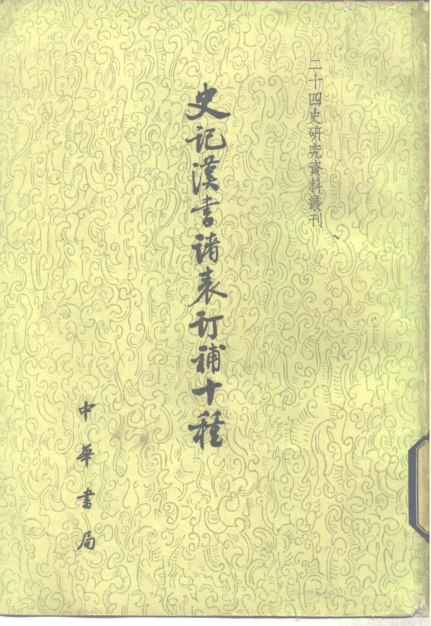 二十四史研究資料叢刊
史记漢書諸表订補十種
中華書局